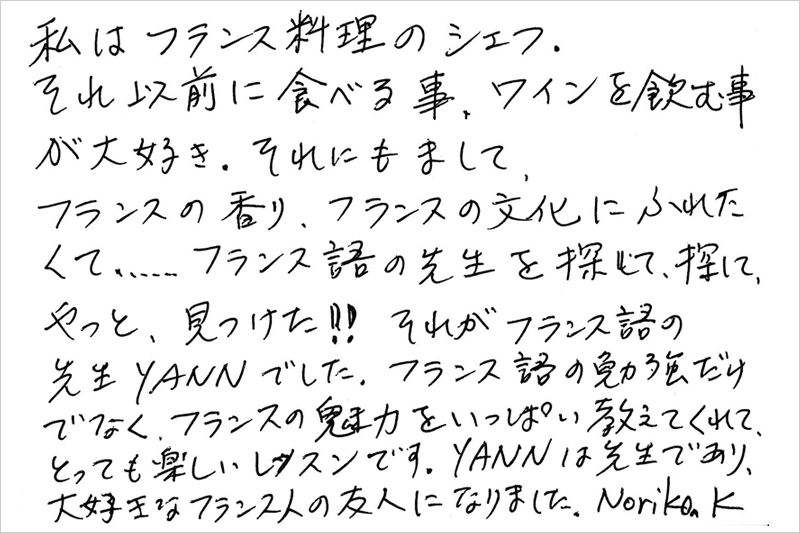 私はフランス料理のシェフ.
それ以前に食べる事、ワインを飲む事
が大好き.それにもまして、
フランスの香り、フランスの文化にふれた
くて、……フランス語の先生を探して、探して、
やっと、見つけた!! それがフランス語の
先生YANNでした.フランス語の勉強だけ
でなく、フランスの魅力をいっぱい教えてくれて、
とっても楽しいレッスンです.YANNは先生であり、
大好きなフランス人の友人になりました.Noriko.K